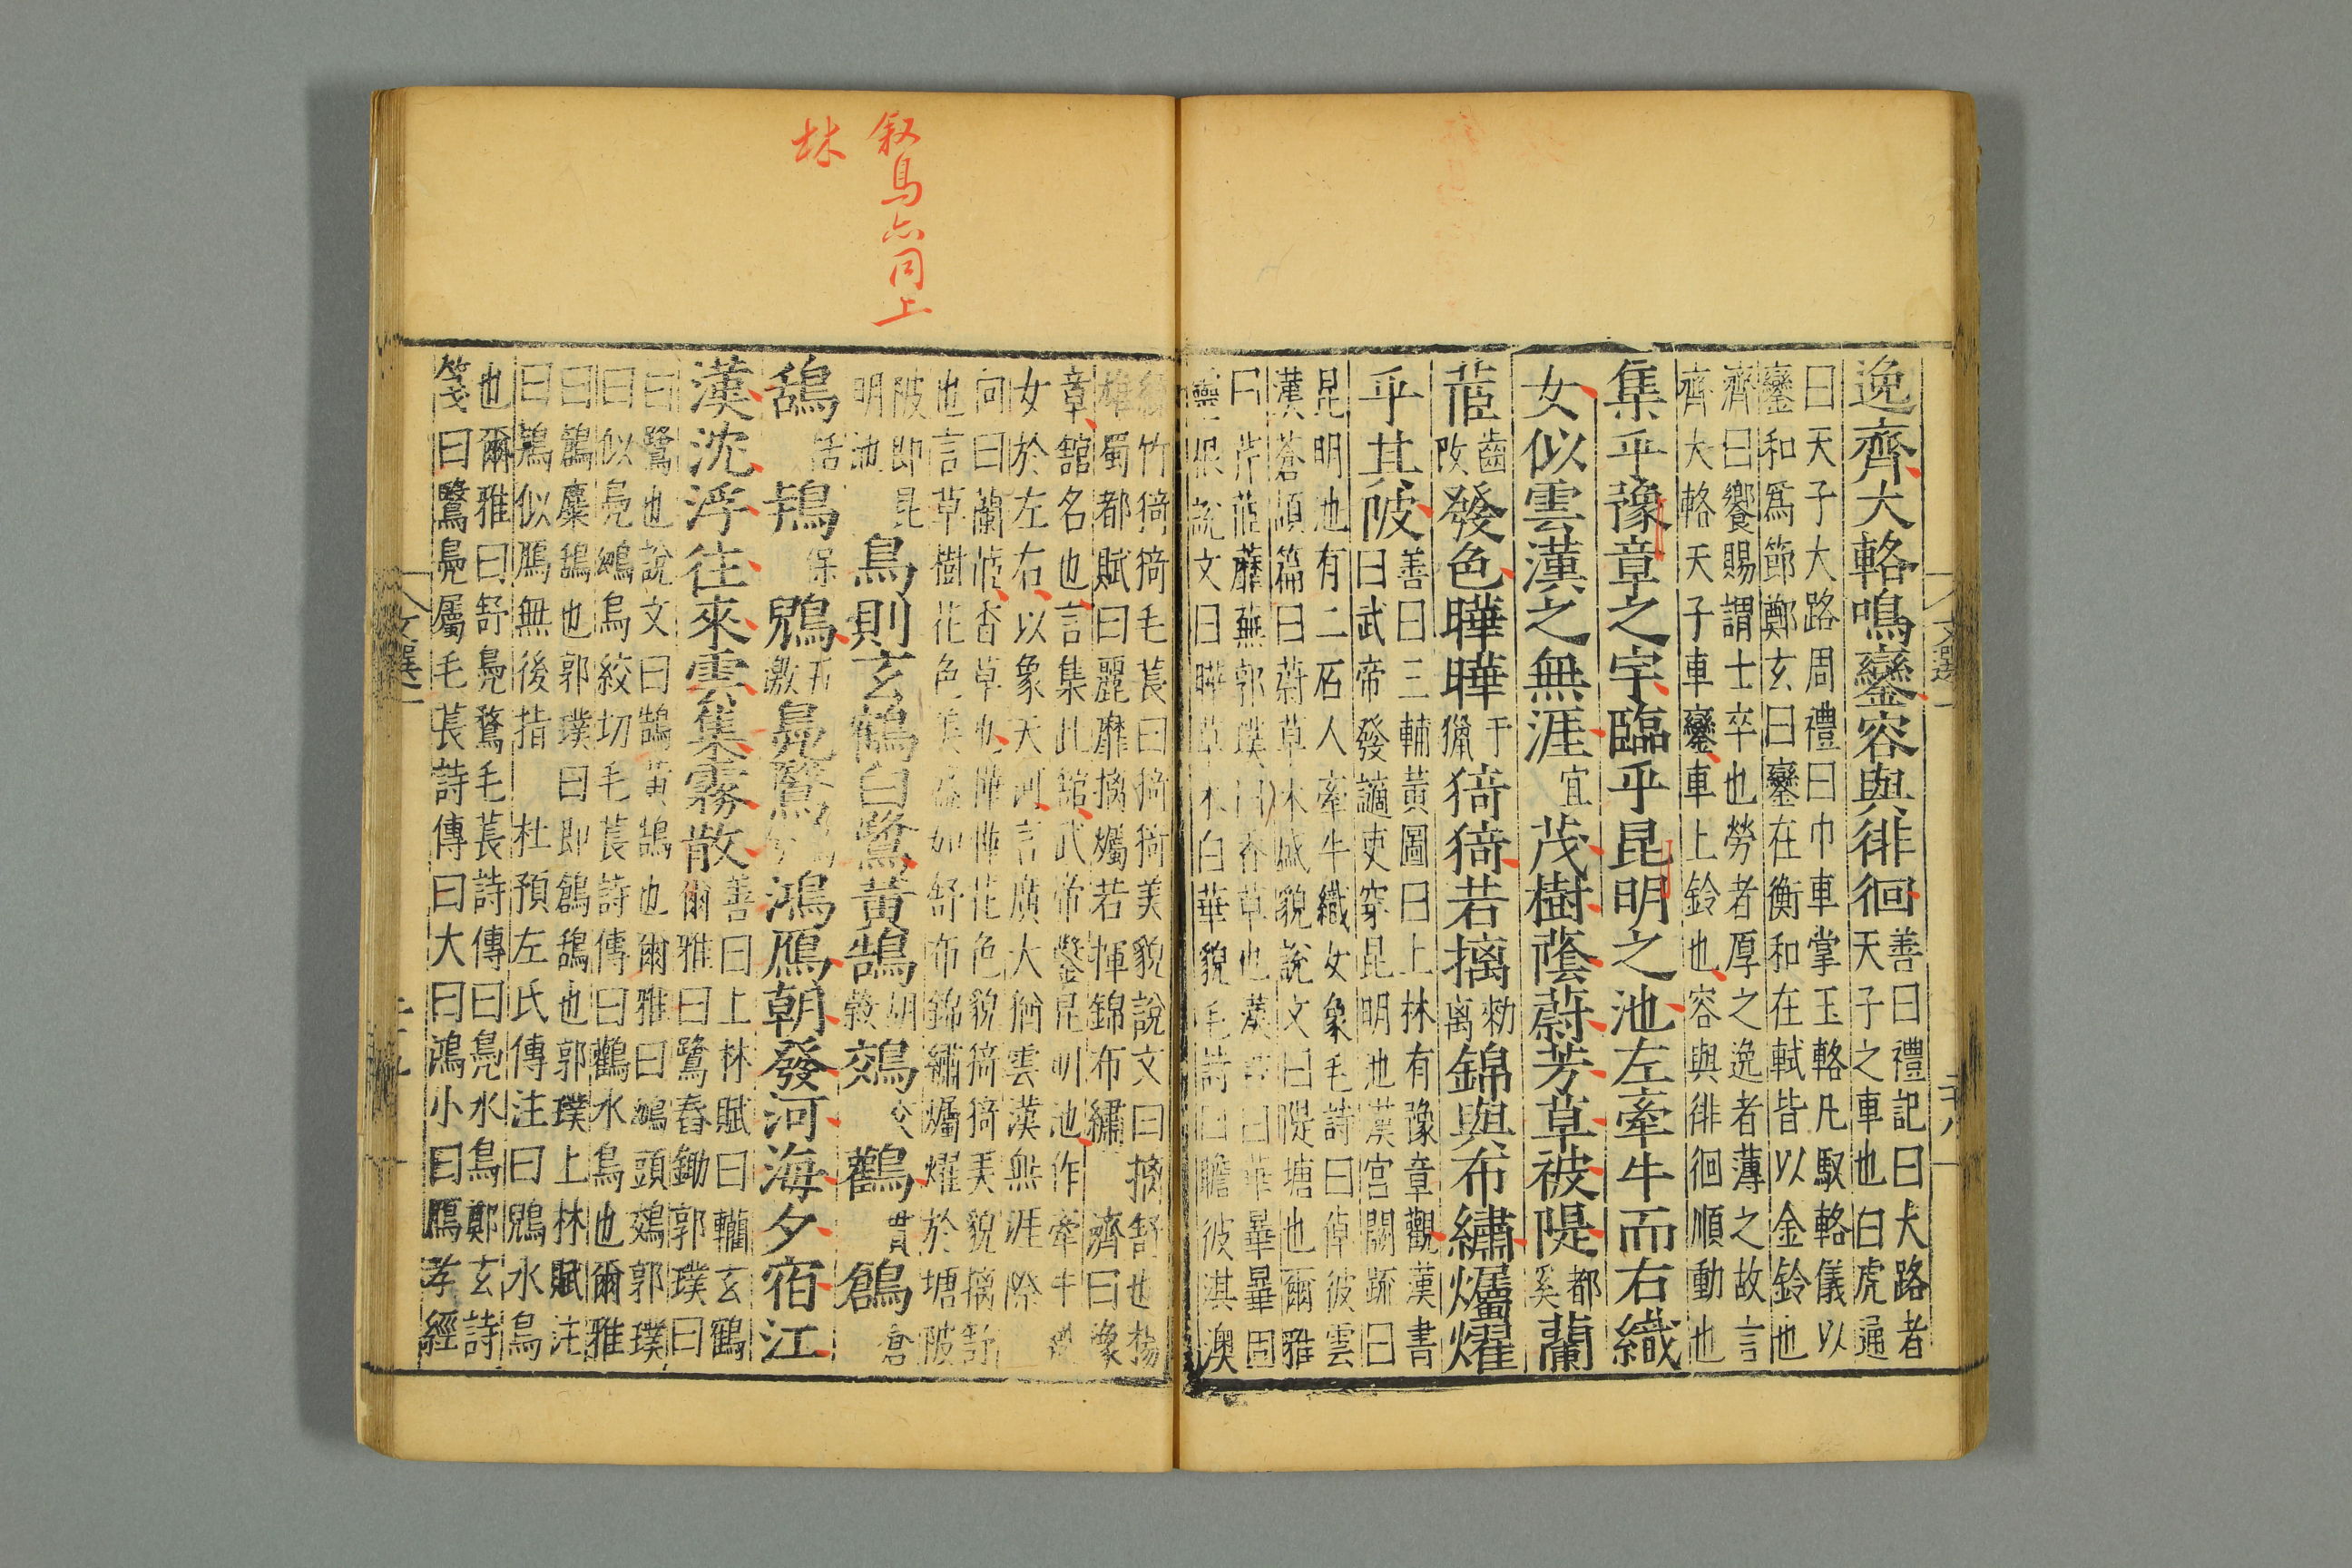 逸齊大輅鳴鑾容與徘徊善曰禮記曰大路者
天子之車也白虎通
曰天子大路周禮曰巾車掌玉輅凡馭輅儀以
鑾和爲節鄭玄曰鑾在衡和在軾皆以金鈴也
齊曰饗賜謂士卒也勞者厚之逸者薄之故言
齊大輅天子車鑾車上鈴也容與徘徊順動也
集乎豫章之宇臨乎昆明之池左牽牛而右織
女似雲漢之無涯宜茂樹蔭蔚芳草被隄都奚蘭
茝齒改發色曄曄于獵猗猗若摛勑离錦與布繡爥燿
乎其陂善曰三輔黃圖曰上林有豫章觀漢書
曰武帝發謫吏穿昆明池漢宮闕疏曰
昆明池有二石人牽牛織女象毛詩曰倬彼雲
漢蒼頡篇曰蔚草木盛貌說文曰隄塘也爾雅
曰芹茝蘪蕪郭璞曰香草也漢書曰華曅曅固
靈根說文曰曄草木白華貌毛詩曰瞻彼淇澳
文選一
二十八
叙鳥亦同上
林
綠竹猗猗毛萇曰猗猗美貌說文曰摛舒也揚
雄蜀都賦曰麗靡摛爥若揮錦布繡 濟曰豫
章館名也言集此館武帝鑿昆明池作牽牛織
女於左右以象天河言廣大猶雲漢無涯際
向曰蘭茝香草也曄曄花色貌猗猗美貌摛舒
也言草樹花色美盛如舒布錦繡爥燿於塘陂
陂即昆
明池
鳥則玄鶴白鷺黃鵠胡穀鵁交鸛貫鶬倉
鴰括鴇保鶂五激鳧鷖鴻鴈朝發河海夕宿江
漢沈浮往來雲集霧散善曰上林賦曰轥玄鶴
爾雅曰鷺舂鋤郭璞曰
曰鷺也說文曰鵠黃鵠也爾雅曰鳽頭鵁郭璞
曰似鳧鵁烏絞切毛萇詩傳曰鸛水鳥也爾雅
曰鶬麋鴰也郭璞曰即鶬鴰也郭璞上林賦注
曰鴇似鴈無後指 杜預左氏傳注曰鶂水鳥
也爾雅曰舒鳧鶩毛萇詩傳曰鳧水鳥鄭玄詩
箋曰鷖鳧屬毛萇詩傳曰大曰鴻小曰鴈孝經
文選一
二十九